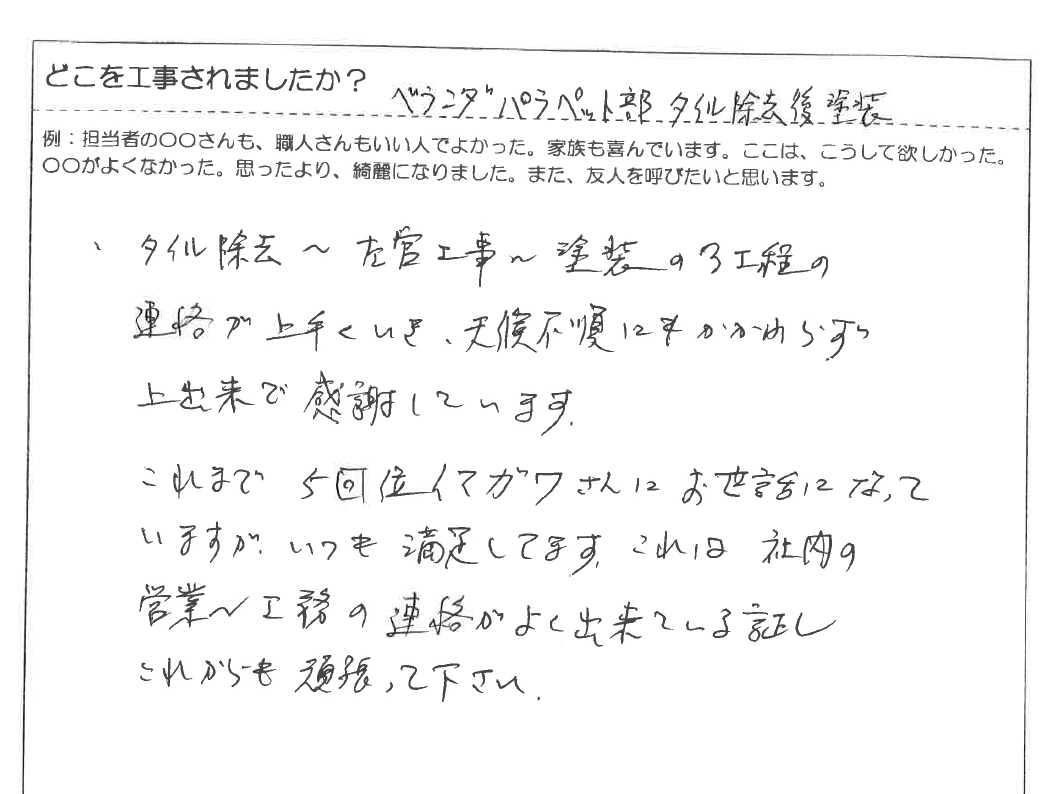 どこを工事されましたか?
ベランダパラペット部タイル除去後塗装
例：担当者の〇〇さんも、職人さんもいい人でよかった。家族も喜んでいます。ここは、こうして欲しかった。
〇〇がよくなかった。思ったより、綺麗になりました。また、友人を呼びたいと思います。
、タイル除去〜左官工事〜塗装の3工程の
連絡が上手くいき、天候不順にもかかわらず
上出来で感謝しています.
これまで5回位イマガワさんにお世話になって
いますが、いつも満足してます. これは社内の
営業〜工務の連絡がよく出来ている証し
これからも頑張って下さい.